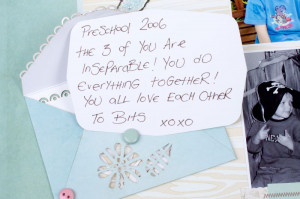 PRESCHOOL 2006
THE 3 OF YOU ARE
INSEPARABLE! YOU DO
EVERYTHING TOGETHER!
YOU ALL LOVE EACH OTHER
TO BITS XOXO